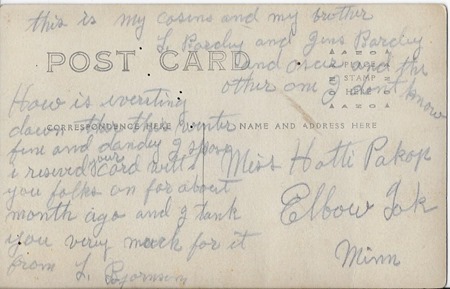 this is my cosins and my brother
L Bardey and Gens Bardey
and oscar and the
other one I dont know
POST CARD
AZOA
PLACE
STAMP
HERE
AZOA
How is everting
down this winter
CORRESPONDENCE HERE
NAME AND ADDRESS HERE
fine and dandy I
i resived your card with
you folks on for about
month ago and I tank
you very much for it
from L. Bjornson
Miss Hatti Pakop
Elbow Lak
Minn